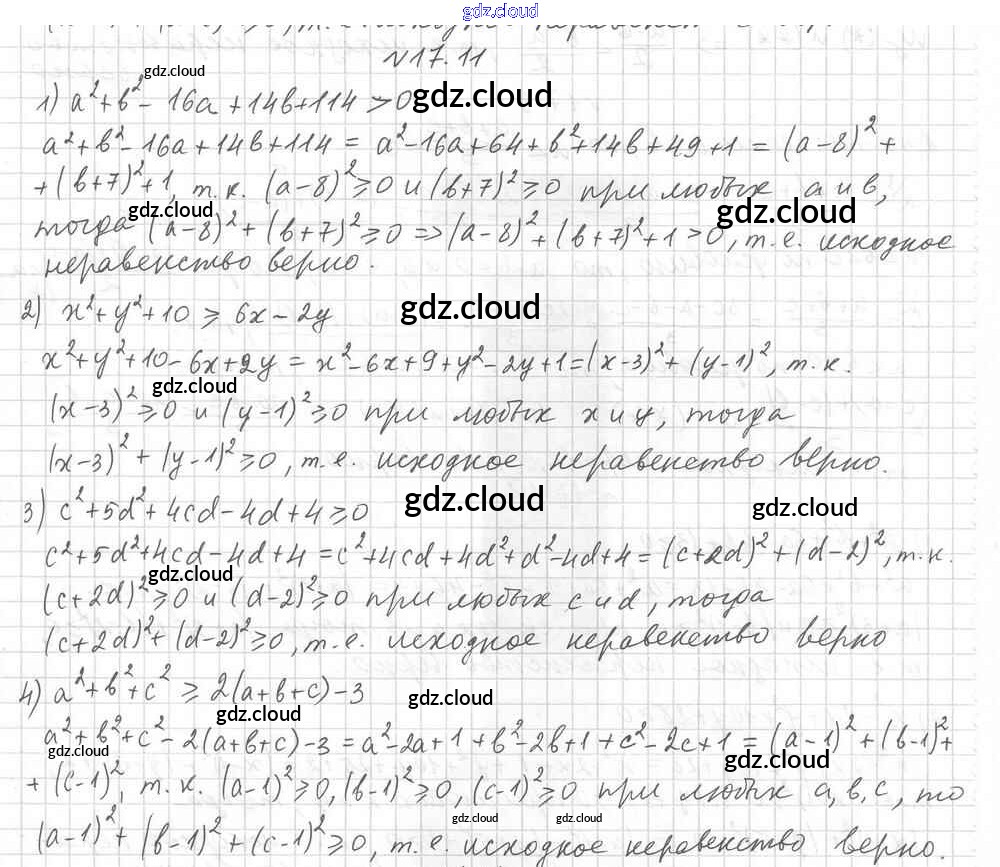 gdz.cloud
N17.11
gdz.cloud
1) a²+b²-16a+14b+114>0
gdz.cloud
a²+b²-16a+14b+114 = a²-16a+64+b²+14b+49+1 = (a-8)²+
+(b+7)²+1, т.к. (a-8)²≥0 и (b+7)²≥0 при любых a и b,
gdz.cloud
gdz.cloud
тогда (a-8)²+(b+7)²≥0 => (a-8)²+(b+7)²+1>0, т.е. исходное
неравенство верно.
2) x²+y²+10 ≥ 6x-2y
gdz.cloud
x²+y²+10-6x+2y = x²-6x+9+y²-2y+1=(x-3)²+(y-1)², т.к.
gdz.cloud
(x-3)²≥0 и (y-1)²≥0 при любых x и y, тогда
(x-3)²+(y-1)²≥0, т.е. исходное неравенство верно.
gdz.cloud
gdz.cloud
3) c²+5d²+4cd-4d+4≥0
c²+5d²+4cd-4d+4=c²+4cd+4d²+d²-4d+4=(c+2d)²+(d-2)², т.к.
gdz.cloud
(c+2d)²≥0 и (d-2)²≥0 при любых c и d, тогда
(c+2d)²+(d-2)²≥0, т.е. исходное неравенство верно
4) a²+b²+c² ≥ 2(a+b+c)-3
gdz.cloud
gdz.cloud
a²+b²+c²-2(a+b+c)-3=a²-2a+1+b²-2b+1+c²-2c+1=(a-1)²+(b-1)²+
gdz.cloud
gdz.cloud
+(c-1)², т.к. (a-1)²≥0, (b-1)²≥0, (c-1)²≥0 при любых a, b, c, то
gdz.cloud
gdz.cloud
(a-1)²+(b-1)²+(c-1)²≥0, т.е. исходное неравенство верно.